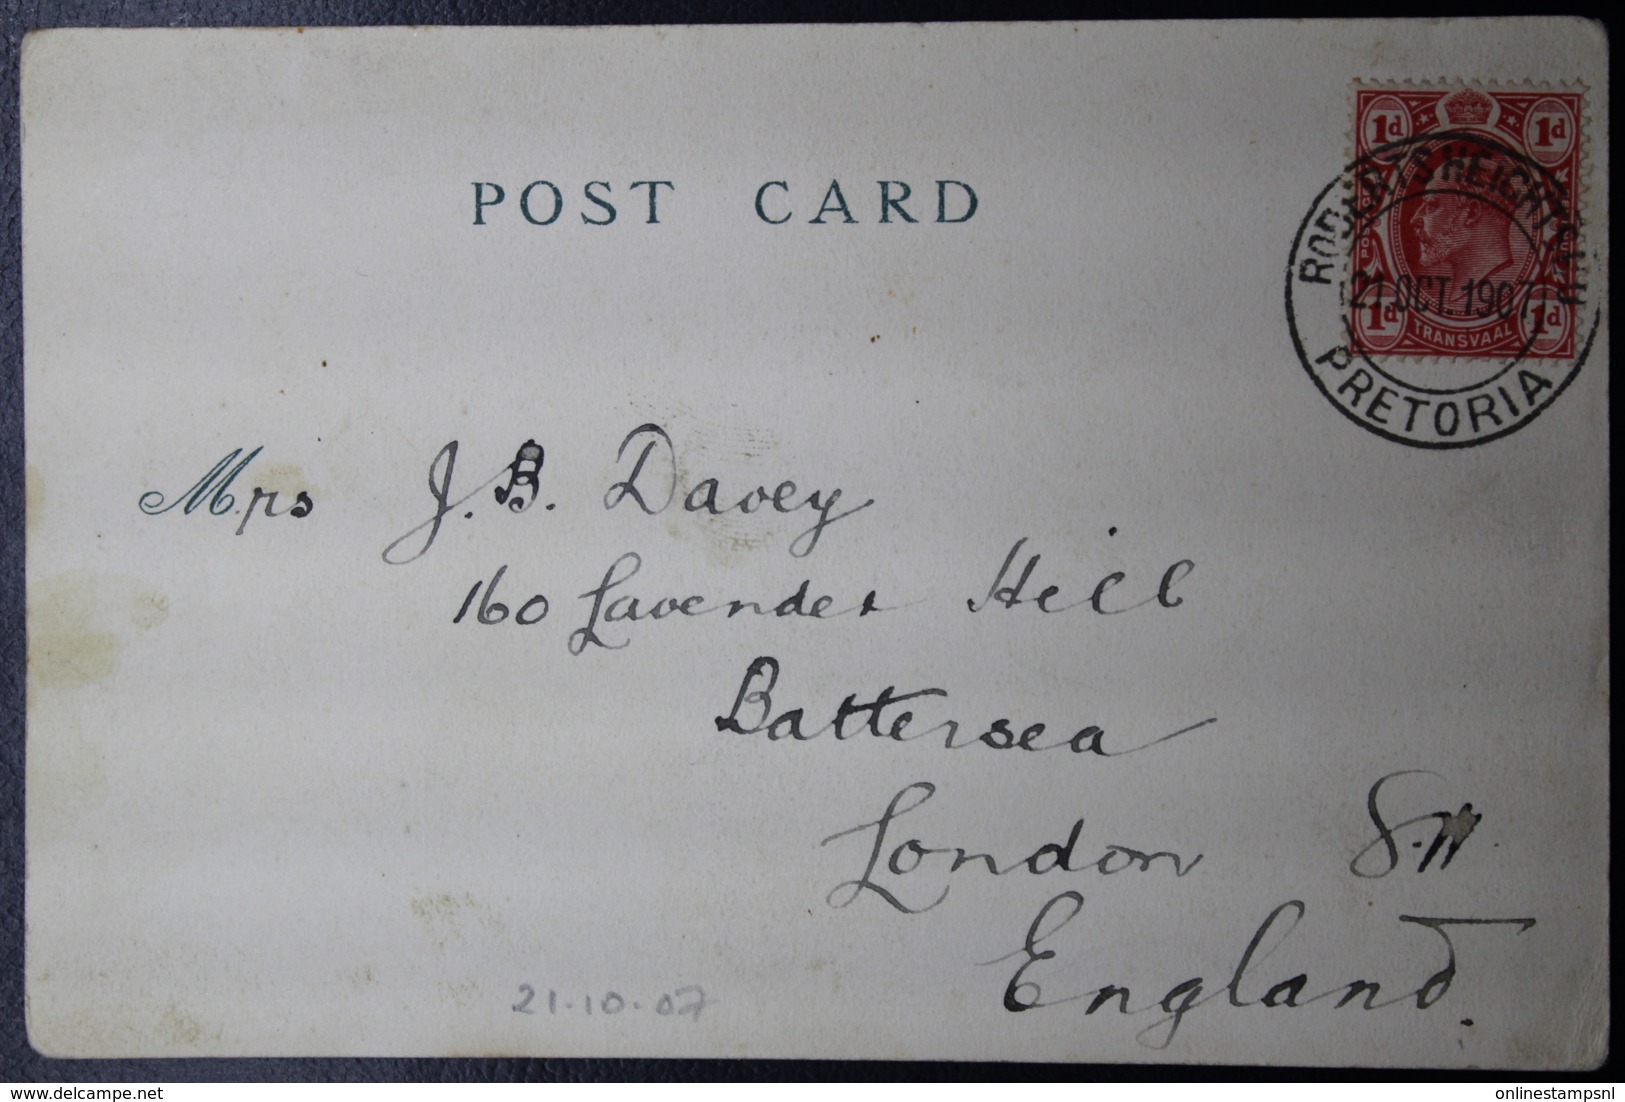 POST CARD
1d 1d
ROBERTS HEIGHTS
21 OCT. 1907
1d 1d
TRANSVAAL
PRETORIA
Mrs J. B. Davey
160 Lavender Hill
Battersea
London S.W.
England.
21.10.07
onlinestampsnl